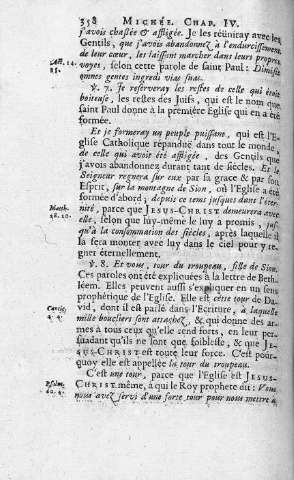 358 MICHÉE. CHAP. IV.
j'avois chassée & affligée. Je les réünirai avec les
Gentils, que j'avois abandonnez à l'endurcissement
de leur cœur, les laissant marcher dans leurs propres
Act. 14. voyes, selon cette parole de saint Paul : Dimisit
15. omnes gentes ingredi vias suas.
℣. 7. Je reserveray les restes de celle qui étoit
boiteuse, les restes des Juifs, qui est le nom que
saint Paul donne à la première Eglise qui en a été
formée.
Et je formeray un peuple puissant, qui est l'E-
glise Catholique répanduë dans tout le monde,
de celle qui avoit été affligée, des Gentils que
j'avois abandonnez durant tant de siècles. Et le
Seigneur regnera sur eux par sa grace & par son
Esprit, sur la montagne de Sion, où l'Eglise a été
formée d'abord; depuis ce tems jusques dans l'éter-
Matth. nité, parce que JESUS-CHRIST demeurera avec
28. 20. elle, selon que luy-même le luy a promis, jus-
qu'à la consommation des siècles, après laquelle il
la fera monter avec luy dans le ciel pour y re-
gner éternellement.
℣. 8. Et vous, tour du troupeau, fille de Sion.
Ces paroles ont été expliquées à la lettre de Beth-
léem. Elles peuvent aussi s'expliquer en un sens
prophétique de l'Eglise. Elle est cette tour de Da-
Cantic. vid, dont il est parlé dans l'Ecriture, à laquelle
4. 4. mille boucliers sont attachez, & qui donne des ar-
mes à tous ceux qu'elle rend forts, en leur per-
suadant qu'ils ne sont que foiblesse, & que JE-
SUS-CHRIST est toute leur force. C'est pour-
quoy elle est appellée la tour du troupeau.
C'est une tour, parce que l'Eglise est JESUS-
Psalm. CHRIST même, à qui le Roy prophete dit : Vous
60. 4. nous avez servi d'une forte tour pour nous mettre à